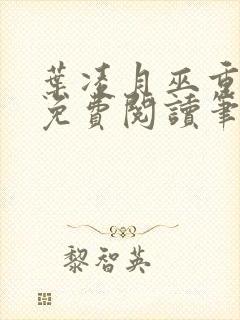 葉凌月巫重
免費閱讀筆
黎智英